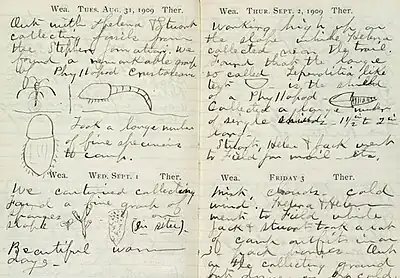 Wea. TUES. AUG. 31, 1909 Ther.
Out with Helena & Stuart
collecting fossils from
the Stephen formation. We
found a remarkable group
of Phyllopod Crustaceans
Took a large number
of fine specimens
to camp.
Wea. WED. SEPT. 1 Ther.
We continued collecting
found a fine group of
Sponges on
slope (in situ).
Beautiful warm
days
Wea. THUR. SEPT. 2, 1909 Ther.
Working high up on
the slope while Helena
collected near the trail.
Found that the large
so called Leperditia like
test is the shield
of a Phyllopod
Collected a large number
of
long.
Stuart, Helen & Jack went
to Field for mail etc.
Wea. FRIDAY 3 Ther.
cold
wind. Helena & Helen
went to Field while
Jack & Stuart took a part
of camp outfit
Out
on the collecting ground